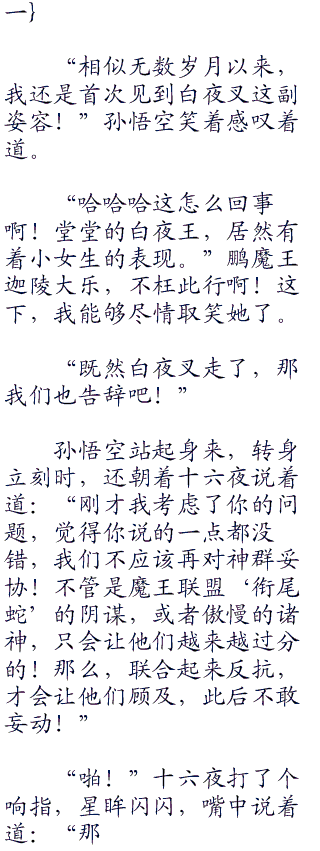 一}
“相似无数岁月以来，
我还是首次见到白夜叉这副
姿容！”孙悟空笑着感叹着
道。
“哈哈哈这怎么回事
啊！堂堂的白夜王，居然有
着小女生的表现。”鹏魔王
迦陵大乐，不枉此行啊！这
下，我能够尽情取笑她了。
“既然白夜叉走了，那
我们也告辞吧！”
孙悟空站起身来，转身
立刻时，还朝着十六夜说着
道：“刚才我考虑了你的问
题，觉得你说的一点都没
错，我们不应该再对神群妥
协！不管是魔王联盟‘衔尾
蛇’的阴谋，或者傲慢的诸
神，只会让他们越来越过分
的！那么，联合起来反抗，
才会让他们顾及，此后不敢
妄动！”
“啪！”十六夜打了个
响指，星眸闪闪，嘴中说着
道：“那